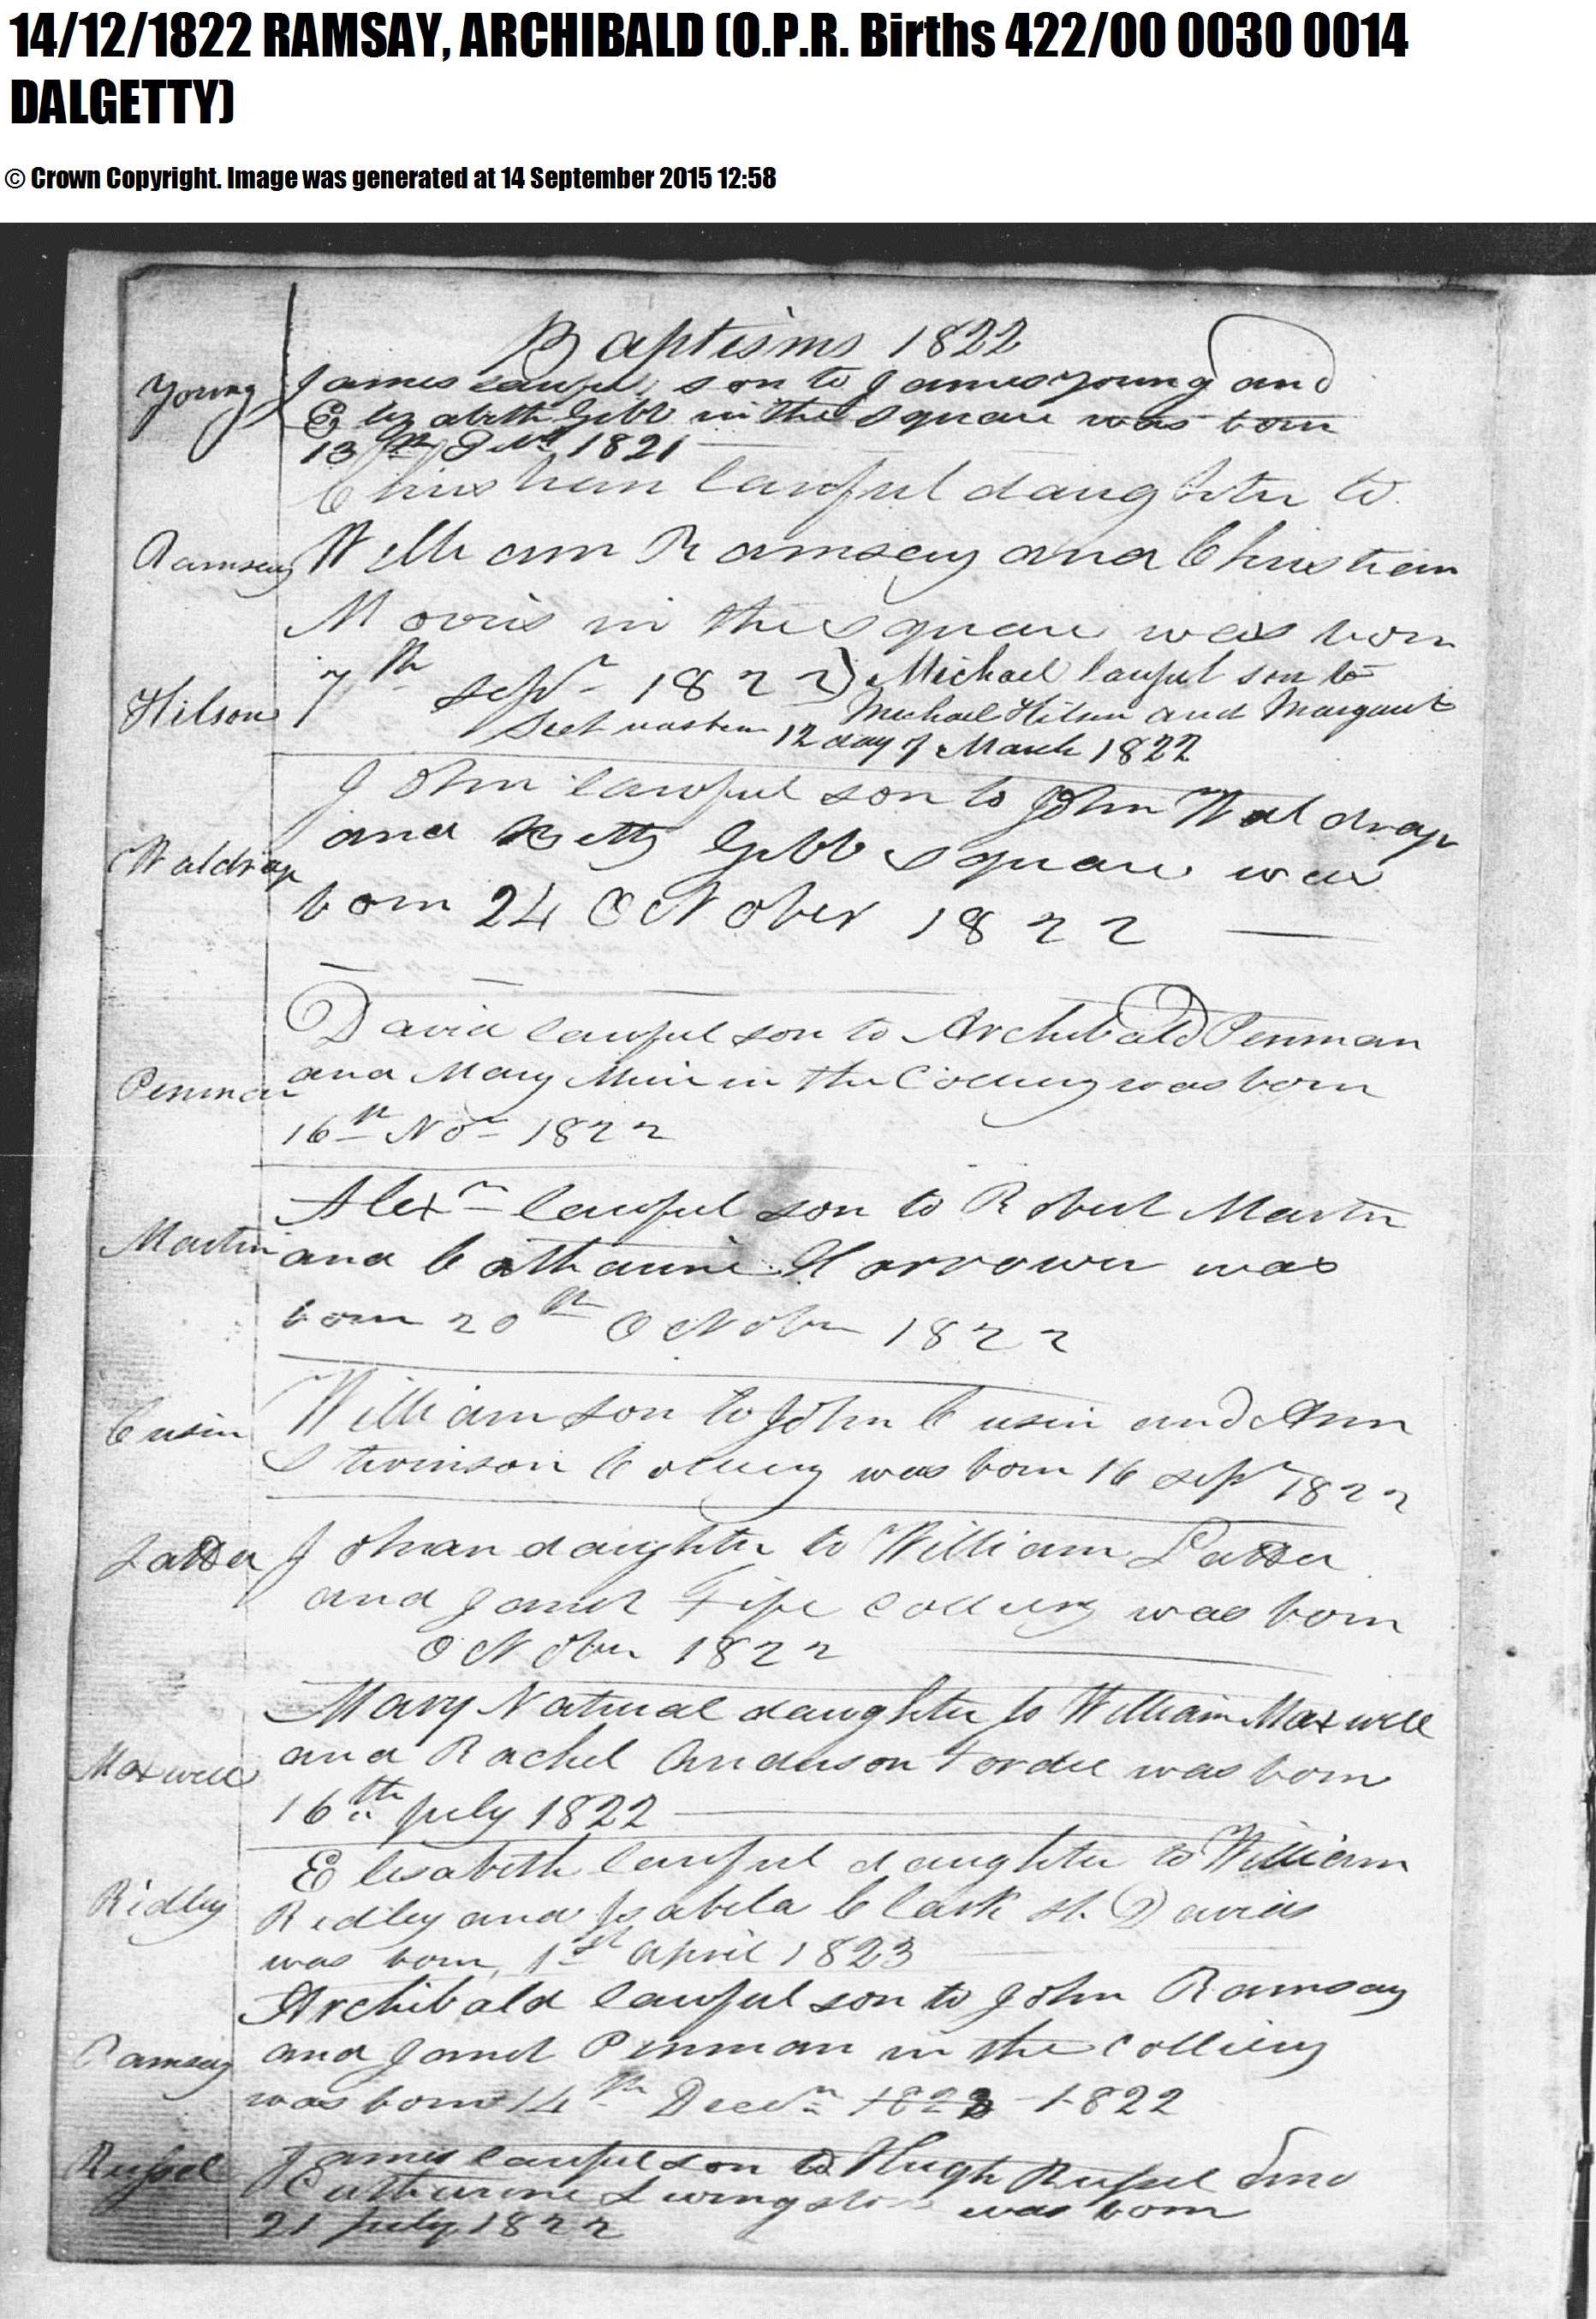 14/12/1822 RAMSAY, ARCHIBALD (O.P.R. Births 422/00 0030 0014
DALGETTY)
© Crown Copyright. Image was generated at 14 September 2015 12:58
Baptisms 1822
Young James lawful son to James Young and
Elizabeth Gibb in the square was born
13th 1821
Christian lawful daughter to
Ramsay William Ramsay and Christian
Morris in the square was born
7th Sepr 1822) Michael lawful son to
Hilson Michael Hilson and Margaret
was born 12 day of March 1822
John lawful son to John Waldrap
Waldrap and Betty Gibb square was
born 24 October 1822
David lawful son to Archibald Penman
Penman and Mary Muir in the Colliery was born
16th Nor 1822
Alexr lawful son to Robert Martin
Martin and Catharine Harrower was
born 20th October 1822
Cusin William son to John Cusin and Ann
Stevinson Colliery was born 16 Sepr 1822
Ladder Johnan daughter to William Ladder
and Janet Fife Colliery was born
October 1822
Mary Natural daughter to William Maxwell
Maxwell and Rachel Anderson Fordel was born
16th July 1822
Elisabeth lawful daughter to William
Ridley Ridley and Isabela Clark St. Davids
was born, 1st April 1823
Archibald lawful son to John Ramsay
Ramsay and Janet Penman in the Colliery
was born 14th Decr 1823 1822
Russel James lawful son to Hugh Russel and
Catharine Livingston was born
21 July 1822